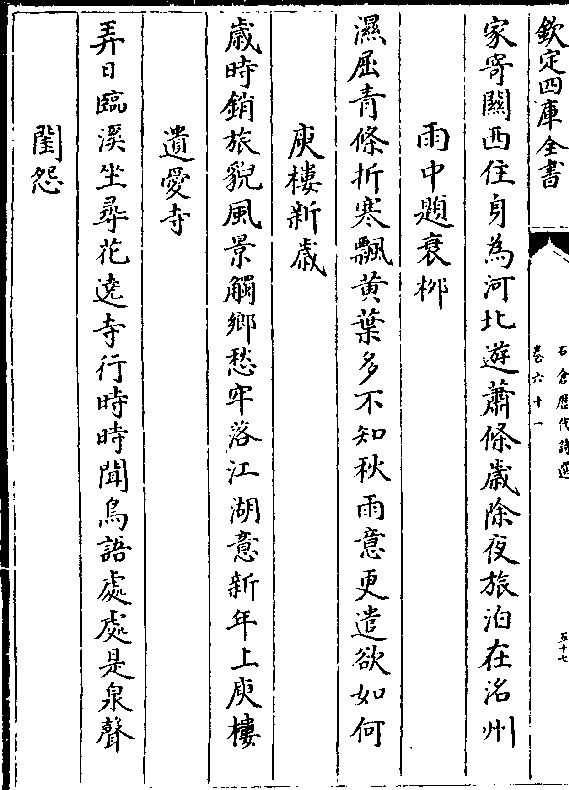 欽定四庫全書
石倉歴代詩選
卷六十一
五十七
家寄關西住身為河北遊蕭條歲除夜旅泊在洺州
雨中題衰栁
濕屈青條折寒飄黄葉多不知秋雨意更遣欲如何
庾樓新歲
歲時銷旅貌風景觸鄉愁牢落江湖意新年上庾樓
遺愛寺
弄日臨溪坐尋花遶寺行時時聞鳥語處處是泉聲
閨怨